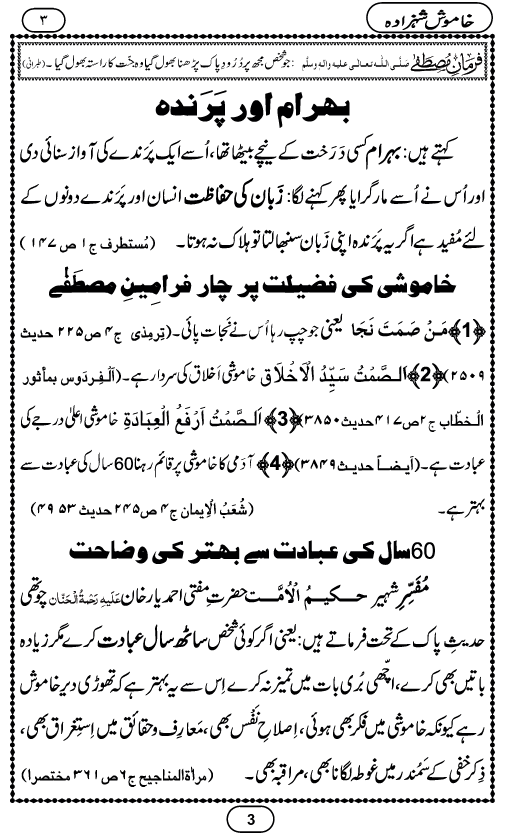 خاموش شہزادہ
۳
فرمانِ مُصطَفٰے صَلَّی اللہُ تعالٰی علیہ والہٖ وسلَّم : جو شخص مجھ پر دُرُودِ پاک پڑھنا بھول گیا وہ جنّت کا راستہ بھول گیا ۔ (طبرانی)
بہرام اور پَرَندہ
کہتے ہیں: بہرام کسی دَرَخت کے نیچے بیٹھا تھا، اُسے ایک پَرَندے کی آواز سنائی دی
اور اُس نے اُسے مار گرایا پھر کہنے لگا: زَبان کی حفاظت انسان اور پَرَندے دونوں کے
لئے مُفید ہے اگر یہ پَرَندہ اپنی زَبان سنبھالتا تو ہلاک نہ ہوتا ۔ (مُستطرف ج۱ ص ۱۴۷)
خاموشی کی فضیلت پر چار فرامینِ مصطَفٰے
﴿1﴾ مَنْ صَمَتَ نَجَا یعنی جو چپ رہا اُس نے نَجات پائی۔ (تِرمِذی ج۴ ص۲۲۵ حدیث
۲۵۰۹) ﴿2﴾ اَلصَّمْتُ سَیِّدُ الْاَخْلَاق خاموشی اَخلاق کی سردار ہے۔ (اَلفِردَوس بمأثور
الْخطّاب ج۲ص۴۱۷حدیث۳۸۵۰) ﴿3﴾ اَلصَّمْتُ اَرْفَعُ الْعِبَادَةِ خاموشی اعلیٰ درجے کی
عبادت ہے۔ (اَیضاً حدیث۳۸۴۹) ﴿4﴾ آدَمی کا خاموشی پر قائم رہنا 60 سال کی عبادت سے
بہتر ہے۔ (شُعَبُ الْاِیمان ج۴ ص۲۴۵ حدیث ۴۹۵۳)
60سال کی عبادت سے بہتر کی وضاحت
مُفَسِّرِ شہیر حکیمُ الْاُمَّت حضرتِ مفتی احمد یار خان عَلَیْہِ رَحْمَةُ الْحَنَّان چوتھی
حدیثِ پاک کے تحت فرماتے ہیں: یعنی اگر کوئی شخص ساٹھ سال عبادت کرے مگر زیادہ
باتیں بھی کرے، اچّھی بُری بات میں تمیز نہ کرے اِس سے یہ بہتر ہے کہ تھوڑی دیر خاموش
رہے کیونکہ خاموشی میں فکر بھی ہوئی، اِصلاحِ نَفْس بھی، مَعارِف و حقائق میں اِستِغراق بھی،
ذِکرِ خفی کے سَمُندر میں غوطہ لگانا بھی، مراقبہ بھی۔ (مراٰۃ المناجیح ج۶ص ۳۶۱ مختصرا)
3